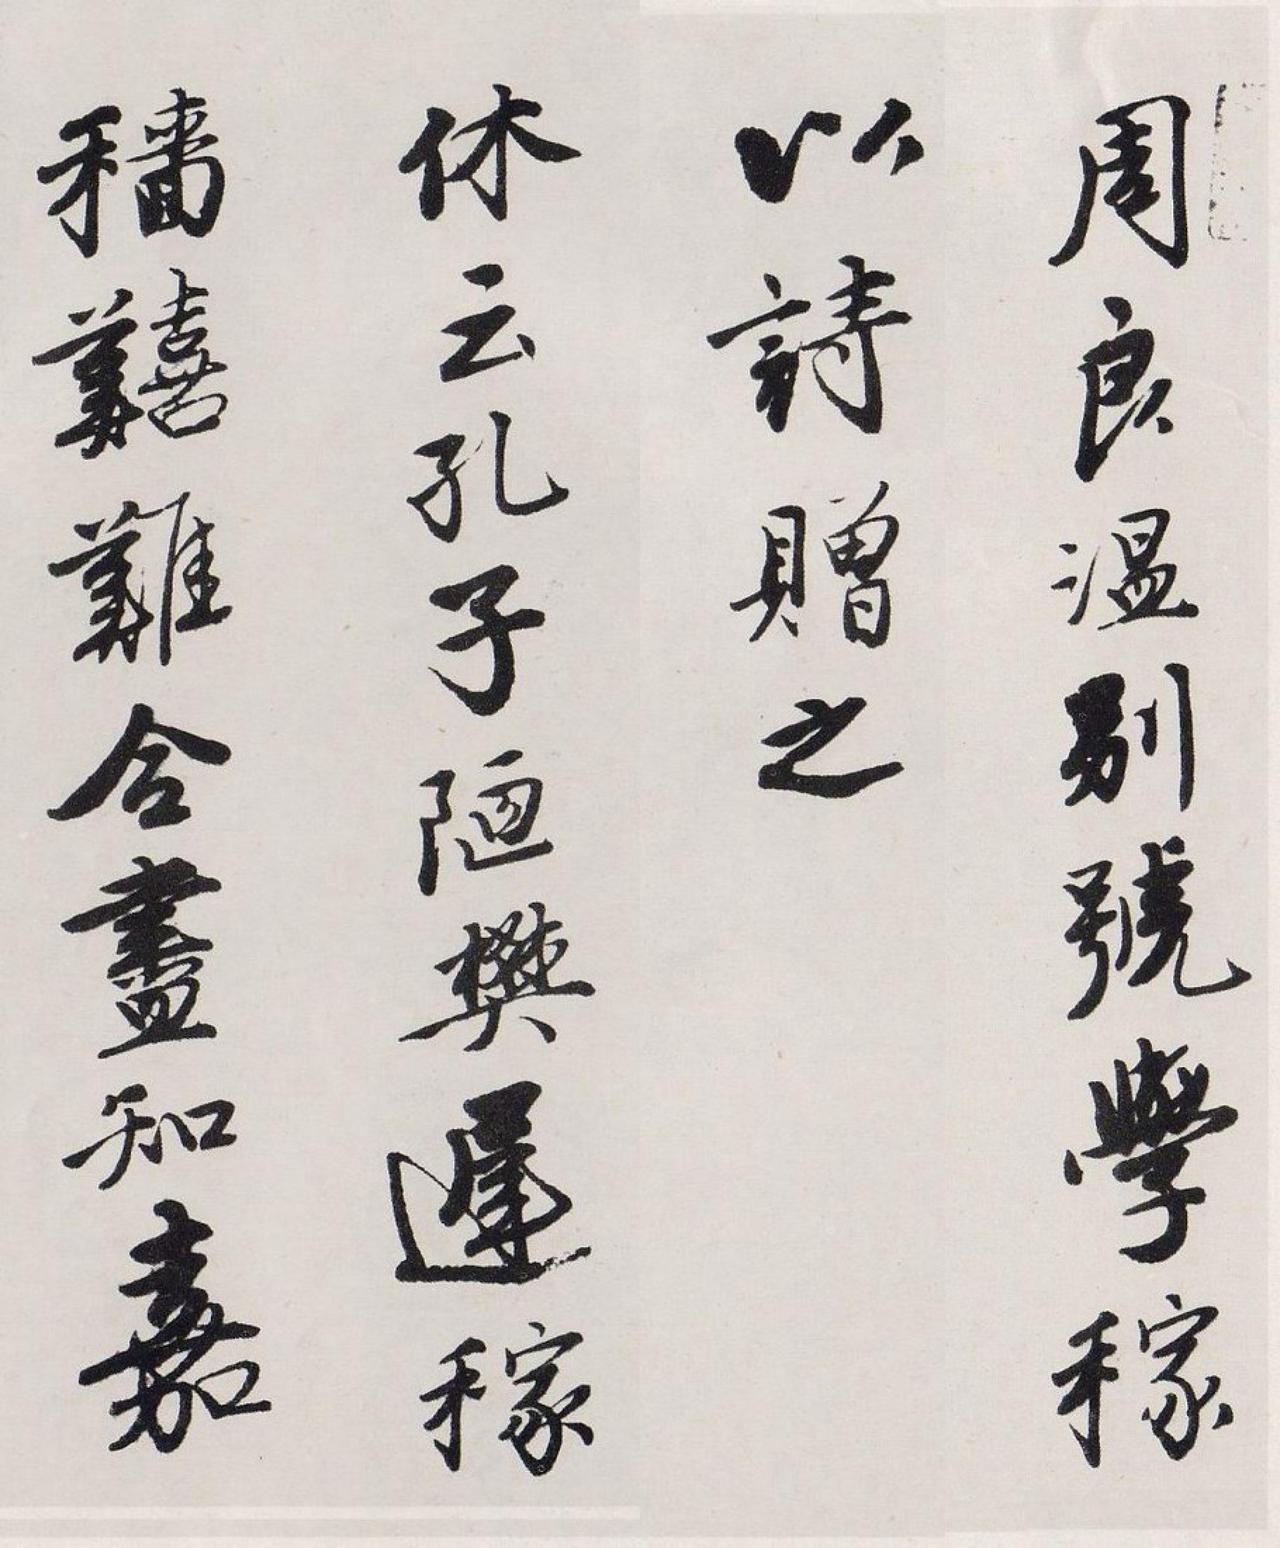 周良溫別號學稼
以詩贈之
休云孔子陋樊遲稼
穡囏難合盡知嘉